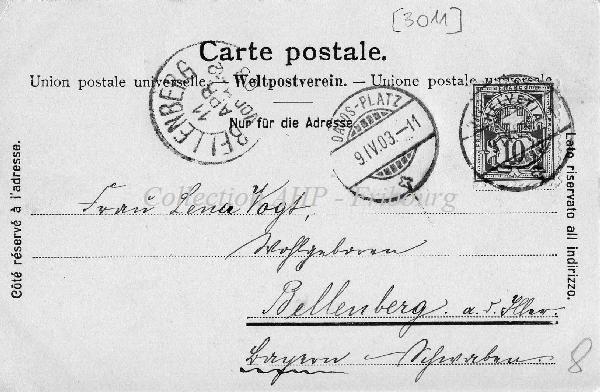 [3011]
Carte postale.
Union postale universelle. – Weltpostverein. – Unione postale universale
Nur für die Adresse.
BELLENBERG
11
APR
DAVOS-PLATZ
9.IV.03.–11
HELVETIA
10
Côté réservé à l'adresse.
Lato riservato all indirizzo.
Collection AHP - Fribourg
Frau Lena Vogt,
Wohlgeboren
Bellenberg a. d. Iller.
Bayern – Schwaben.
8